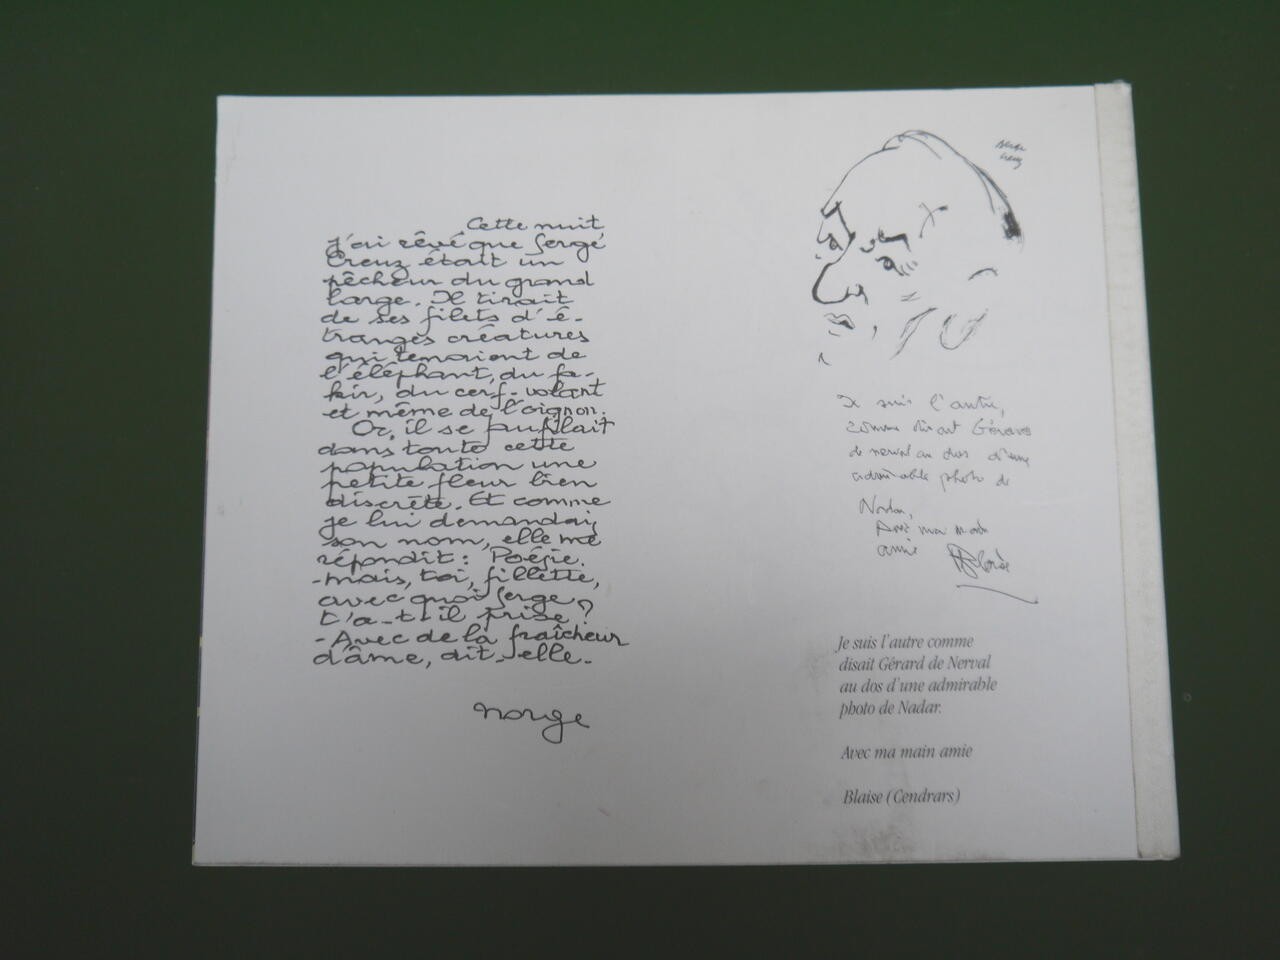 Cette nuit
j'ai rêvé que Serge
Creuz était un
pêcheur du grand
large. Il tirait
de ses filets d'é-
tranges créatures
qui tenaient de
l'éléphant, du fa-
kir, du cerf-volant
et même de l'oignon.
Or, il se faufilait
dans toute cette
population une
petite fleur bien
discrète. Et comme
je lui demandais
son nom, elle me
répondit : Poésie.
- Mais, toi, fillette,
avec quoi Serge
t'a-t-il prise ?
- Avec de la fraîcheur
d'âme, dit-elle.
Norge
Serge
Creuz
Je suis l'autre,
comme disait Gérard
de Nerval au dos d'une
admirable photo de
Nadar,
Avec ma main
amie Blaise
Je suis l'autre comme
disait Gérard de Nerval
au dos d'une admirable
photo de Nadar.
Avec ma main amie
Blaise (Cendrars)